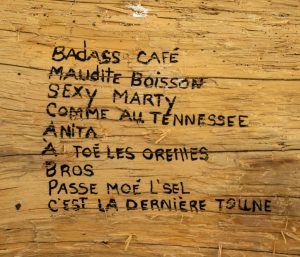 BADASS CAFÉ
MAUDITE BOISSON
SEXY MARTY
COMME AU TENNESSEE
ANITA
A TOÉ LES OREILLES
BROS
PASSE MOÉ L'SEL
C'EST LA DERNIÈRE TOUNE